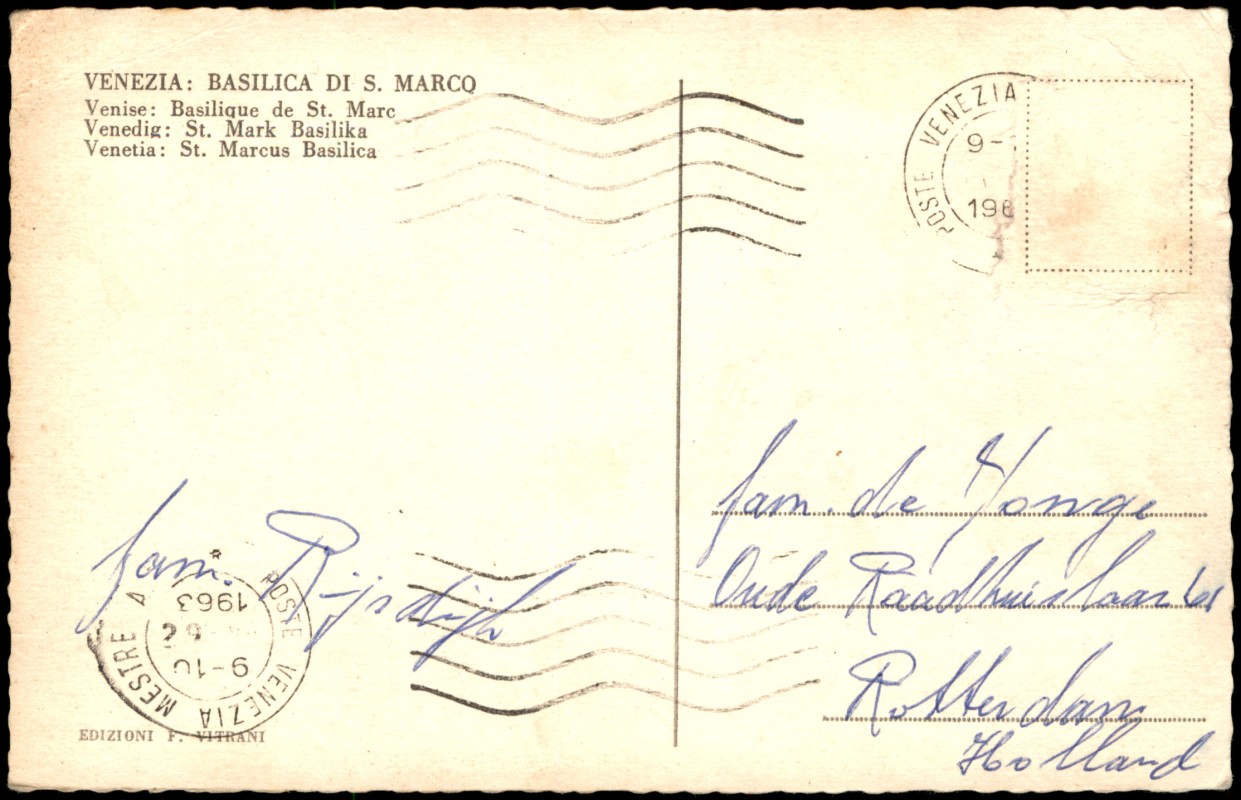 VENEZIA: BASILICA DI S. MARCO
Venise: Basilique de St. Marc
Venedig: St. Mark Basilika
Venetia: St. Marcus Basilica
POSTE VENEZIA
9-
196
fam. de Jonge
Oude Raadhuislaan
Rotterdam
Holland
fam. Rijsdijk
POSTE VENEZIA MESTRE A
1963
9-10
EDIZIONI F. VITRANI